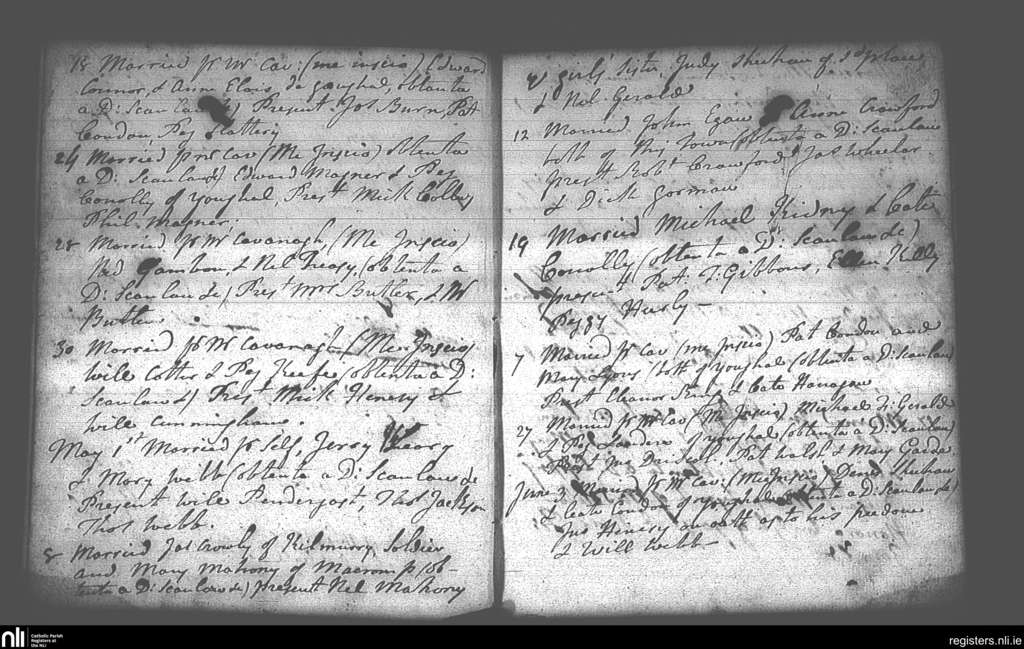 18 Married pr Mr Cav: (me inscio) Edward
Connor, & Anne Clois de Youghal, obtenta
a D: Scanlan Present Jos Burn, Pat
Condon, Peg Slattery
24 Married pr Mr Cav (Me Inscio) obtenta
a D: Scanlan &) Edward Magner & Peg
Conolly of youghal, Prest Mick Colbey
Phil Magner;
28 Married pr Mr Cavanagh, (Me Inscio)
Ned Gambon, & Nel Treasy, (obtenta a
D: Scanlan &c) Prest Mrs Butler, & Mr
Butler
30 Married pr Mr Cavanagh (Me Inscio)
Will Cotter & Peg Keefe (obtenta a D:
Scanlan &) Prest Mick Henery &
Will Cunningham.
May 1st Married pr self, Jerry Henry
& Mary Webb (obtenta a D: Scanlan &c
Present Will Pendergast, Thos Jackson
Thos Webb.
8 Married Jas Crowly of Kilmurry, Soldier
and Mary Mahony of Macromp (ob-
tenta a D: Scanlan &) present Nel Mahony
girls sister, Judy Sheehan of sd place
& Nel Gerald
12 Married John Egan & Anne Crawford
both of this Town (obtenta a D: Scanlan
prest Robt Crawford, Jas Wheeler
& Dick Gorman
19 Married Michael Kidny & Cate
Conolly (obtenta a D: Scanlan &c)
present Pat FzGibbons, Ellen Kelly
Peggy Hurly
7 Married pr Cav (me Inscio) Pat Condon and
Mary Lyons both of youghal (obtenta a D: Scanlan)
Prest Eleanor & Cate Hanagan
27 Married pr Mr Cav (Me Inscio) Michael FzGerald
& Peg Landers of youghal (obtenta a D: Scanlan)
Prest Jas Driscoll, Pat Walsh & Mary
June 3 Married pr Mr Cav: (Me Inscio) David Sheehan
& Cate Condon of youghal (obtenta a D: Scanlan &)
Jas Henery on oath as to his freedom
& Will Webb
nli Catholic Parish
Registers at
the NLI
registers.nli.ie